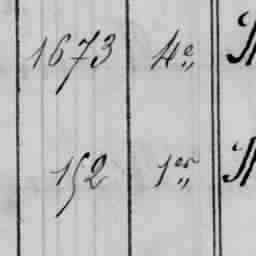 1673 4e„
152 1er„